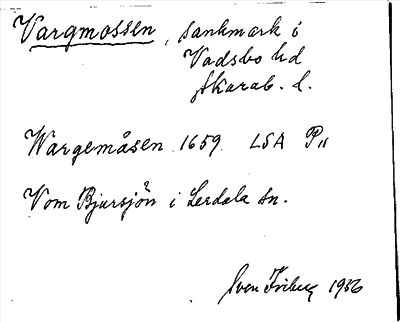 Vargmossen, sankmark i
Vadsbo hd
Skarab. l.
Wargemåsen 1659 LSA P11
Vom Bjursjön i Lerdala sn.
Sven Friberg 1956